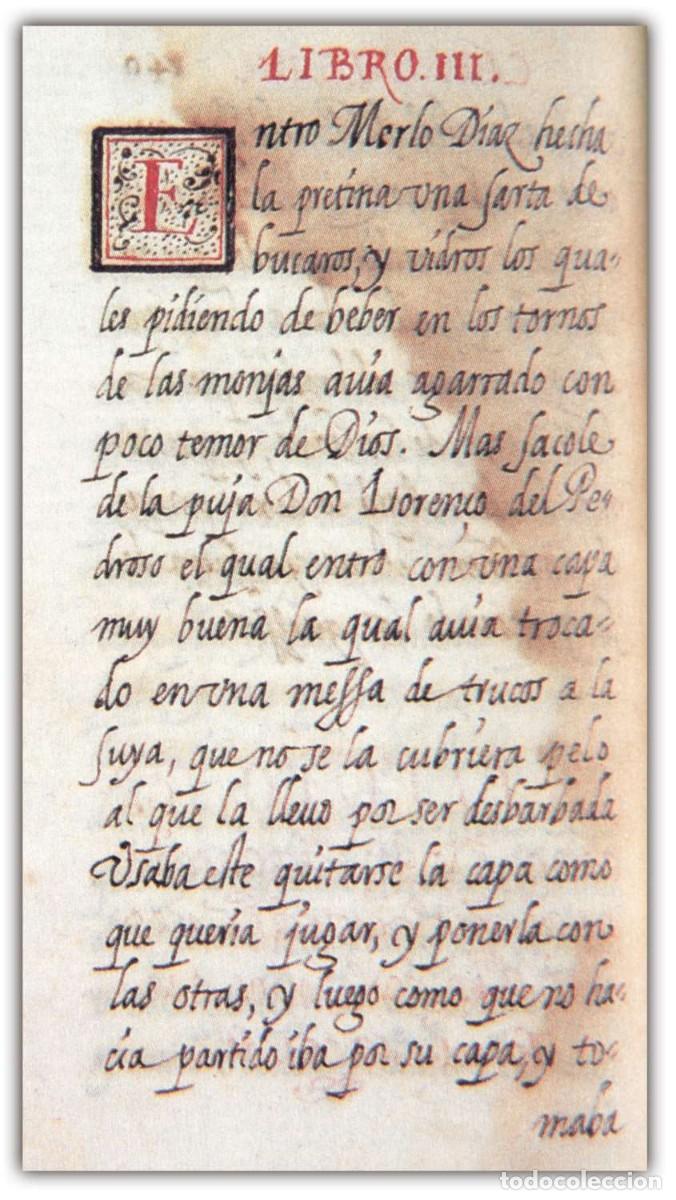 LIBRO.III.
Entro Merlo Diaz hecha
la pretina una sarta de
bucaros, y vidros los qua-
les pidiendo de beber en los tornos
de las monjas auia agarrado con
poco temor de Dios. Mas sacole
de la puja Don Lorenço del Pe-
droso el qual entro con una capa
muy buena la qual auia troca-
do en una messa de trucos a la
suya, que no se la cubriera pelo
al que la lleuo por ser desbarbada
Usaba este quitarse la capa como
que queria jugar, y ponerla con
las otras, y luego como que no ha-
cia partido iba por su capa, y to-
maba
todocoleccion